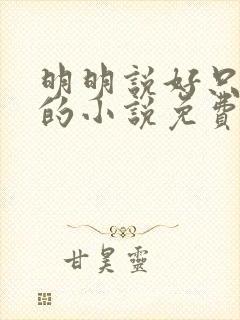 明明説好只
的小説免費
甘昊靈